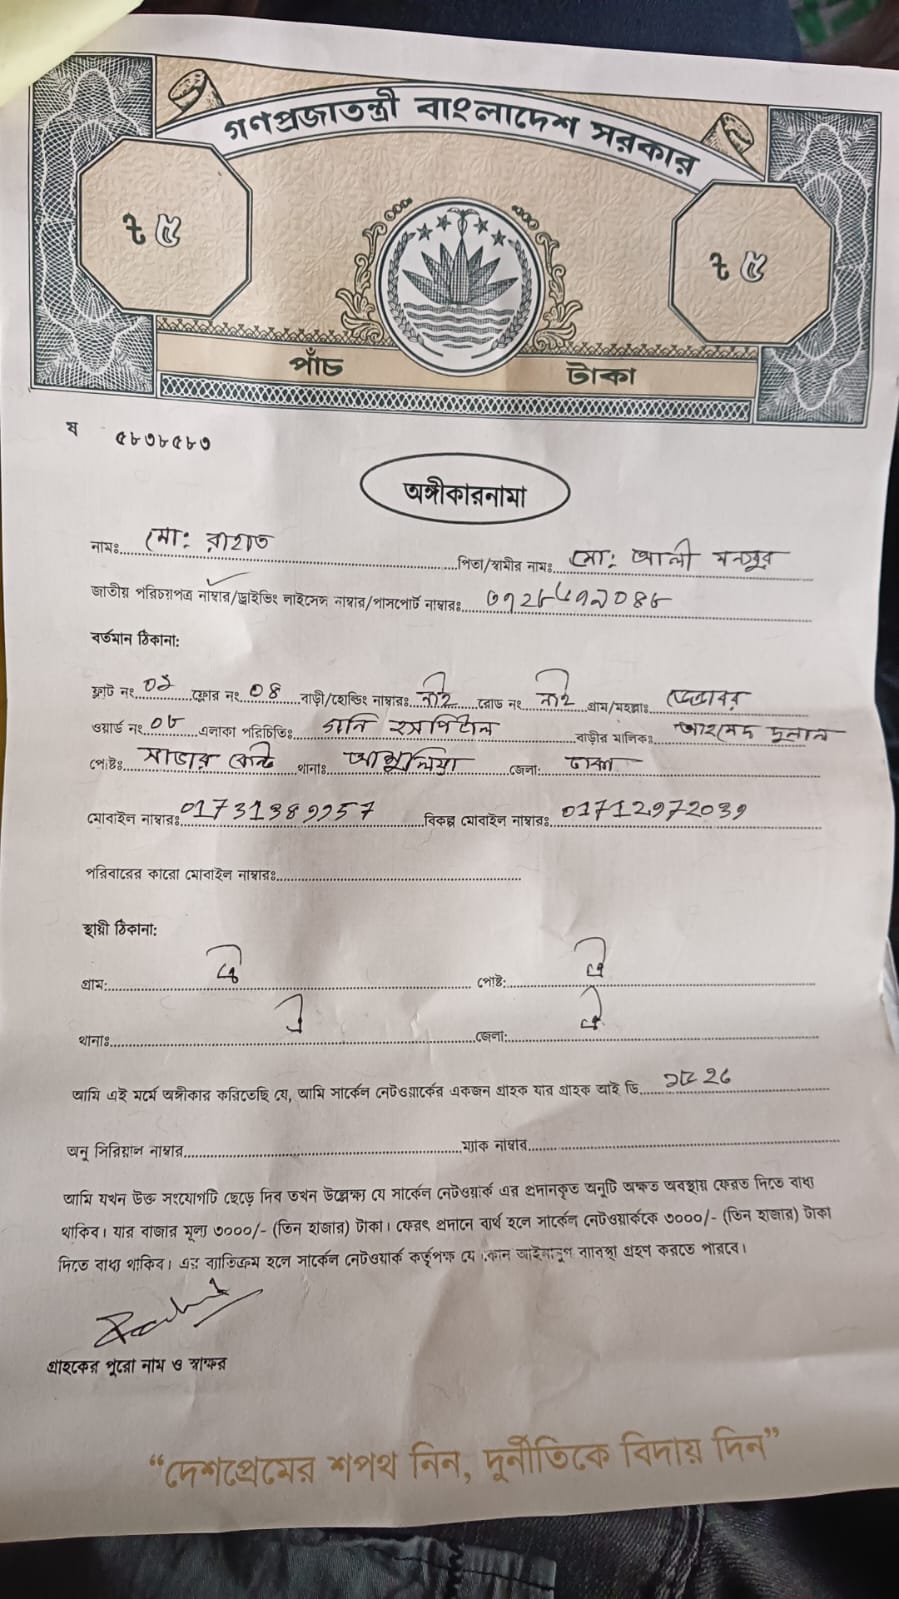 গণপ্রজাতন্ত্রী বাংলাদেশ সরকার
৳ ৫ ৳ ৫
পাঁচ টাকা
ষ ৫৮৩৮৫৮৩
অঙ্গীকারনামা
নামঃ মো: রাহাত পিতা/স্বামীর নামঃ মো: আলী মনসুর
জাতীয় পরিচয়পত্র নাম্বার/ড্রাইভিং লাইসেন্স নাম্বার/পাসপোর্ট নাম্বারঃ
বর্তমান ঠিকানা:
ফ্লাট নং ফ্লোর নং ০৪ বাড়ী/হোল্ডিং নাম্বারঃ নাই রোড নং নাই গ্রাম/মহল্লাঃ ডেন্ডাবর
ওয়ার্ড নং ০৮ এলাকা পরিচিতিঃ গনি হসপিটাল বাড়ীর মালিকঃ আহমেদ দুলাল
পোষ্টঃ সাভার কেন্ট থানাঃ আশুলিয়া জেলা: ঢাকা
মোবাইল নাম্বারঃ 01731389957 বিকল্প মোবাইল নাম্বারঃ 01712972039
পরিবারের কারো মোবাইল নাম্বারঃ
স্থায়ী ঠিকানা:
গ্রাম: ঐ পোষ্ট: ঐ
থানাঃ ঐ জেলা: ঐ
আমি এই মর্মে অঙ্গীকার করিতেছি যে, আমি সার্কেল নেটওয়ার্কের একজন গ্রাহক যার গ্রাহক আই ডি
অনু সিরিয়াল নাম্বার ম্যাক নাম্বার
আমি যখন উক্ত সংযোগটি ছেড়ে দিব তখন উল্লেক্ষ্য যে সার্কেল নেটওয়ার্ক এর প্রদানকৃত অনুটি অক্ষত অবস্থায় ফেরত দিতে বাধ্য
থাকিব। যার বাজার মূল্য ৩০০০/- (তিন হাজার) টাকা। ফেরৎ প্রদানে ব্যর্থ হলে সার্কেল নেটওয়ার্ককে ৩০০০/- (তিন হাজার) টাকা
দিতে বাধ্য থাকিব। এর ব্যাতিক্রম হলে সার্কেল নেটওয়ার্ক কর্তৃপক্ষ যে কোন আইনানুগ ব্যাবস্থা গ্রহণ করতে পারবে।
গ্রাহকের পুরো নাম ও স্বাক্ষর
“দেশপ্রেমের শপথ নিন, দুর্নীতিকে বিদায় দিন”